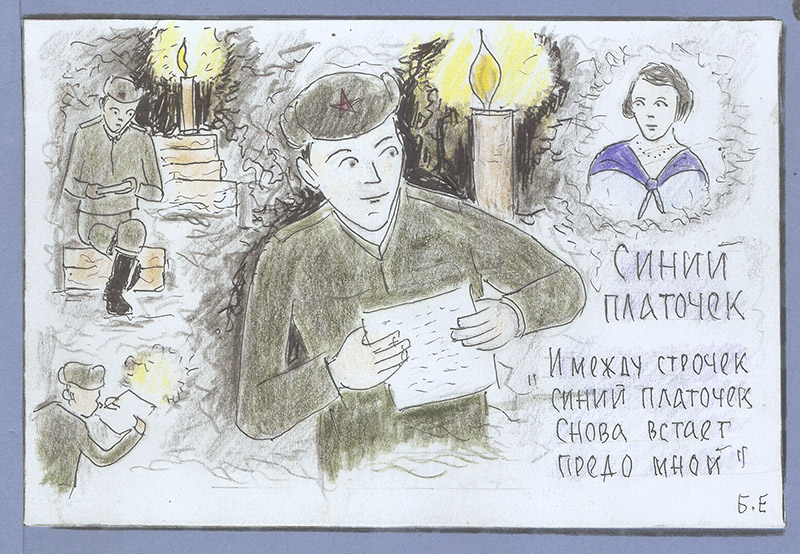 Синий
платочек
"И между строчек
синий платочек
снова встает
предо мной"
Б.Е